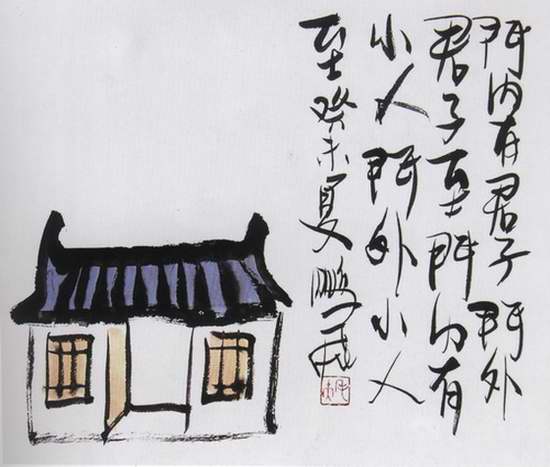 門内有君子門外
君子至門内有
小人門外小人
至癸未夏鵬